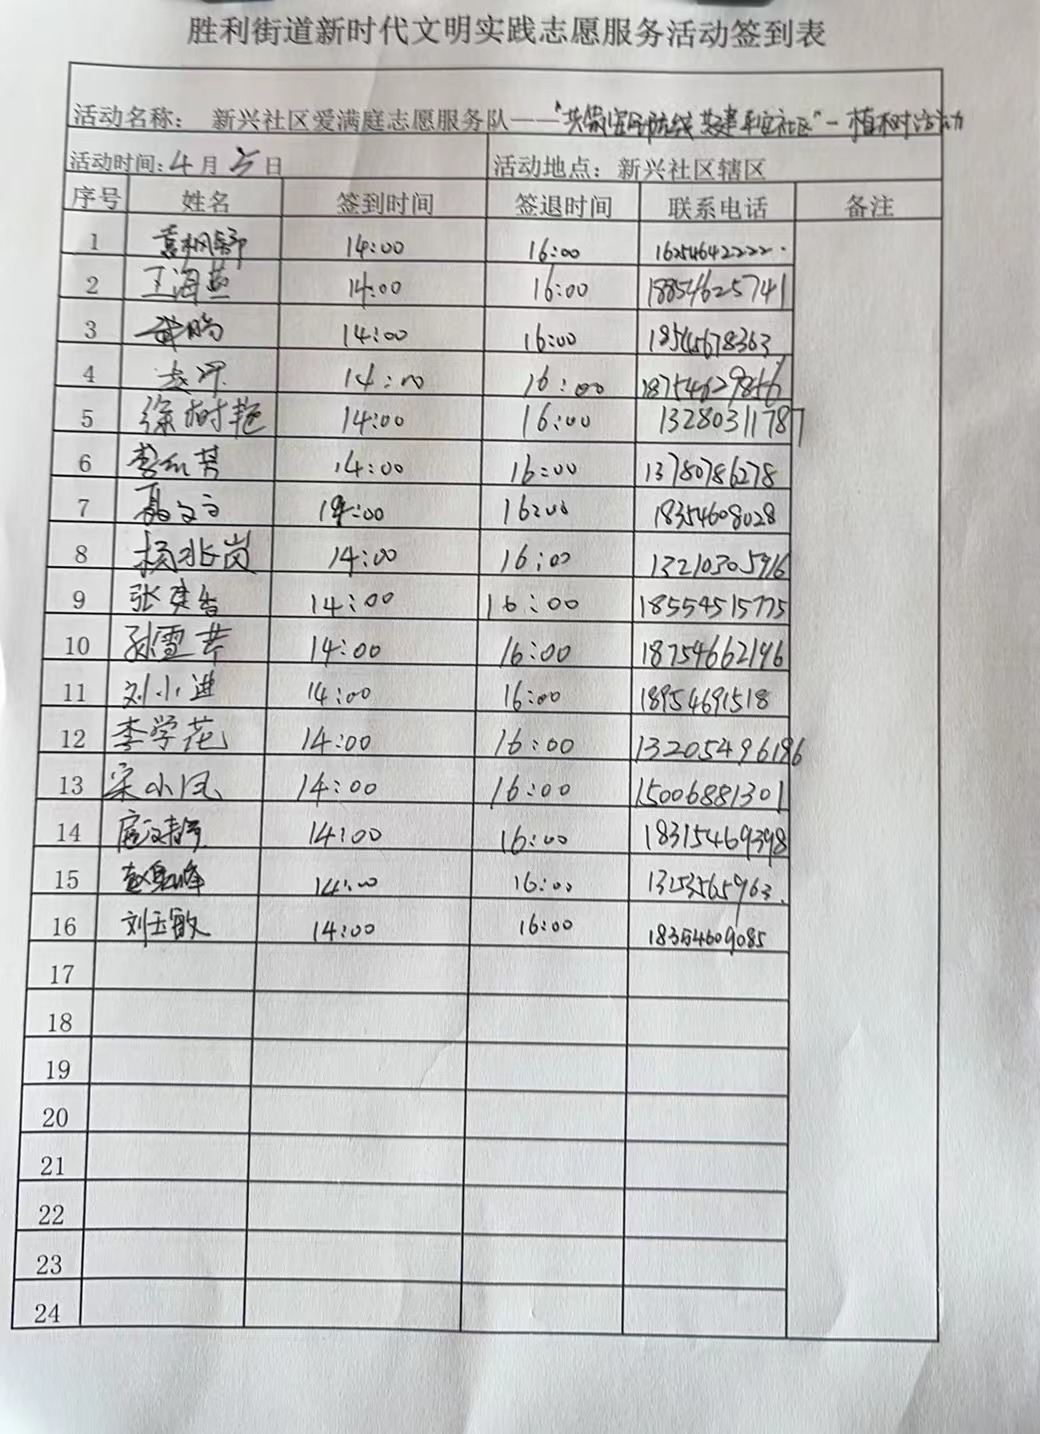 胜利街道新时代文明实践志愿服务活动签到表
活动名称： 新兴社区爱满庭志愿服务队——"共筑安全防线 共建平安社区"-植树活动
活动时间：4月5日 活动地点：新兴社区辖区
序号 姓名 签到时间 签退时间 联系电话 备注
1 袁枫舒 14:00 16:00 16254642222
2 王海燕 14:00 16:00 18854625741
3 14:00 16:00 18545678363
4 14:00 16:00 18754629856
5 徐树艳 14:00 16:00 13280311787
6 李红芳 14:00 16:00 13780786278
7 聂文文 14:00 16:00 18354608028
8 杨兆岗 14:00 16:00 13210305916
9 张建香 14:00 16:00 18554515775
10 孙雪芹 14:00 16:00 18754662196
11 刘小进 14:00 16:00 18954691518
12 李学花 14:00 16:00 13205496196
13 宋小凤 14:00 16:00 15006881301
14 14:00 16:00 18315469398
15 14:00 16:00 1323565963
16 刘玉敏 14:00 16:00 18354609085
17
18
19
20
21
22
23
24